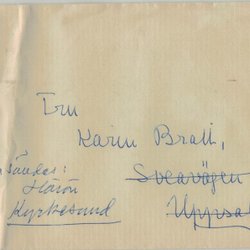 Fru
Karin Bratt,
Sveavägen
Uppsa
sändes:
Härön
Kyrkesund